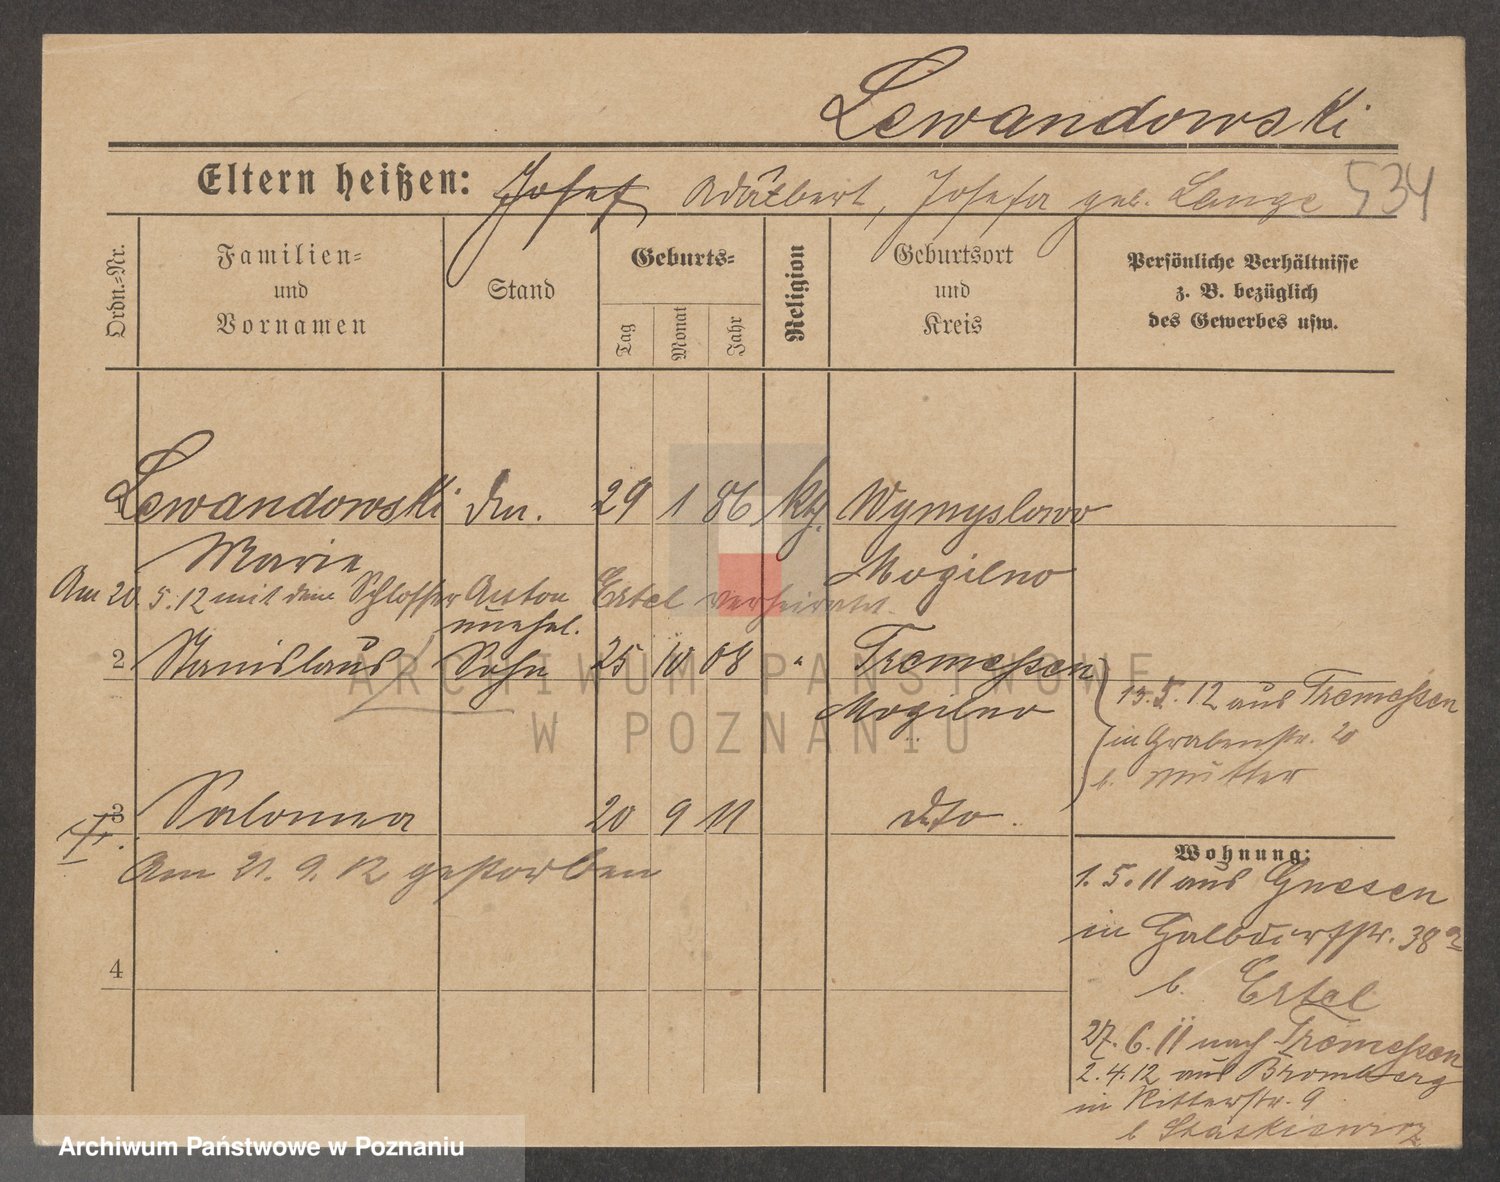 Lewandowski
Eltern heißen: Josef Adalbert, Josefa geb. Lange 534
Ordn.-Nr.
Familien-
und
Vornamen
Stand
Geburts-
Tag
Monat
Jahr
Religion
Geburtsort
und
Kreis
Persönliche Verhältnisse
z. B. bezüglich
des Gewerbes usw.
1 Lewandowski 29 1 86 kth. Wymyslowo
Marie Mogilno
Am 20. 5. 12 mit dem Schlosser Anton Ertel verheiratet
unehel.
2 Stanislaus Sohn 25 10 08 " Tremessen
Mogilno
15. 5. 12 aus Tremessen
in Grabenstr. 20
b. Mutter
3 Salomea 20 9 11 dto.
Am 21. 9. 12 gestorben
4
Wohnung:
1. 5. 11 aus Gnesen
in 38a
b. Ertel
27. 6. 11 nach Tremessen
2. 4. 12 aus Bromberg
in Ritterstr. 9
b
ARCHIWUM PAŃSTWOWE
W POZNANIU
Archiwum Państwowe w Poznaniu